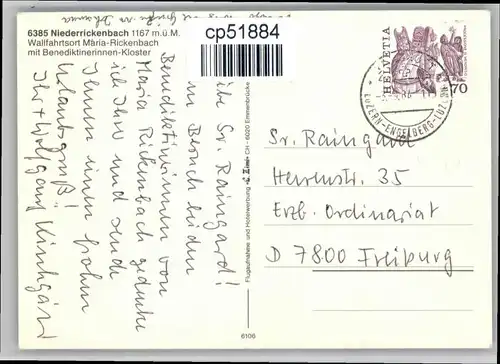 6385 Niederrickenbach 1167 m.ü.M.
Wallfahrtsort Maria-Rickenbach
mit Benediktinerinnen-Kloster
cp51884
HELVETIA
70
LUZERN-ENGELBERG-LUZERN
Sr. Raingard
Herrenstr. 35
Erzb. Ordinariat
D 7800 Freiburg
Liebe Sr. Raingard!
Beim Besuch bei den
Benediktinerinnen von
Maria Rickenbach gedenke
ich Ihrer und sende
Ihnen einen frohen
Urlaubsgruß!
Ihr Wolfgang Kirchgäs
Flugaufnahme und Hotelwerbung
CH - 6020 Emmenbrücke
6106